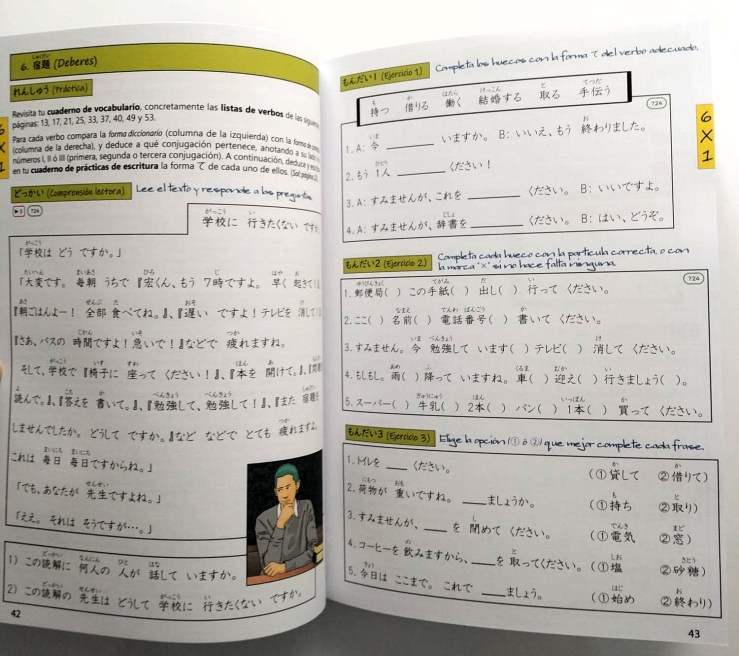 6. 宿題 (Deberes)
れんしゅう (Práctica)
Revisita tu cuaderno de vocabulario, concretamente las listas de verbos de las siguientes
páginas: 13, 17, 21, 25, 33, 37, 40, 49 y 53.
Para cada verbo compara la forma diccionario (columna de la izquierda) con la forma de
(columna de la derecha), y deduce a qué conjugación pertenece, anotando a su lado
números I, II ó III (primera, segunda o tercera conjugación). A continuación, deduce y
en tu cuaderno de prácticas de escritura la forma て de cada uno de ellos. (Sol: página
どっかい (Comprensión lectora) Lee el texto y responde a las preguntas
3 724
学校に 行きたくない です
「学校は どう ですか。」
「大変です。 毎朝 うちで『宏くん、もう 7時ですよ。 早く 起きて
『朝ごはんよー! 全部 食べてね。』、『遅い ですよ!テレビを 消して
『さあ、バスの 時間ですよ!急いで!』などで 疲れますね。
そして、学校で『椅子に 座って ください!』、『本を 開けて。』、『問題
読んで。』、『答えを 書いて。』、『勉強して、勉強して!』、『また 宿題
しませんでしたか。どうして ですか。』など などで とても 疲れますよ。
これは 毎日 毎日ですからね。」
「でも、あなたが 先生ですよね。」
「ええ。それは そうですが…。」
1) この読解に 何人の 人が 話して いますか。
2) この読解の 先生は どうして 学校に 行きたくない ですか。
42
6
X
1
もんだい1 (Ejercicio 1) Completa los huecos con la forma て del verbo adecuado.
持つ 借りる 働く 結婚する 取る 手伝う
724
1. A: 今 ______ いますか。 B: いいえ、もう 終わりました。
2. もう 1人 ______ ください!
3. A: すみませんが、これを ______ ください。 B: いいですよ。
4. A: すみませんが、辞書を ______ ください。 B: はい、どうぞ。
もんだい2 (Ejercicio 2) Completa cada hueco con la partícula correcta, o con
la marca "×" si no hace falta ninguna.
724
1. 郵便局( ) この手紙( ) 出し( ) 行って ください。
2. ここ( ) 名前( ) 電話番号( ) 書いて ください。
3. すみません。今 勉強して います( ) テレビ( ) 消して ください。
4. もしもし。雨( ) 降って いますね。車( ) 迎え( ) 行きましょう( )。
5. スーパー( ) 牛乳( ) 2本( ) パン( ) 1本( ) 買って ください。
もんだい3 (Ejercicio 3) Elige la opción (① ó ②) que mejor complete cada frase.
1. トイレを ____ ください。 (①貸して ②借りて)
2. 荷物が 重いですね。 ____ましょうか。 (①持ち ②取り)
3. すみませんが、____ を 閉めて ください。 (①電気 ②窓)
4. コーヒーを 飲みますから、____を 取ってください。 (①塩 ②砂糖)
5. 今日は ここまで。これで ____ましょう。 (①始め ②終わり)
43
6
X
1